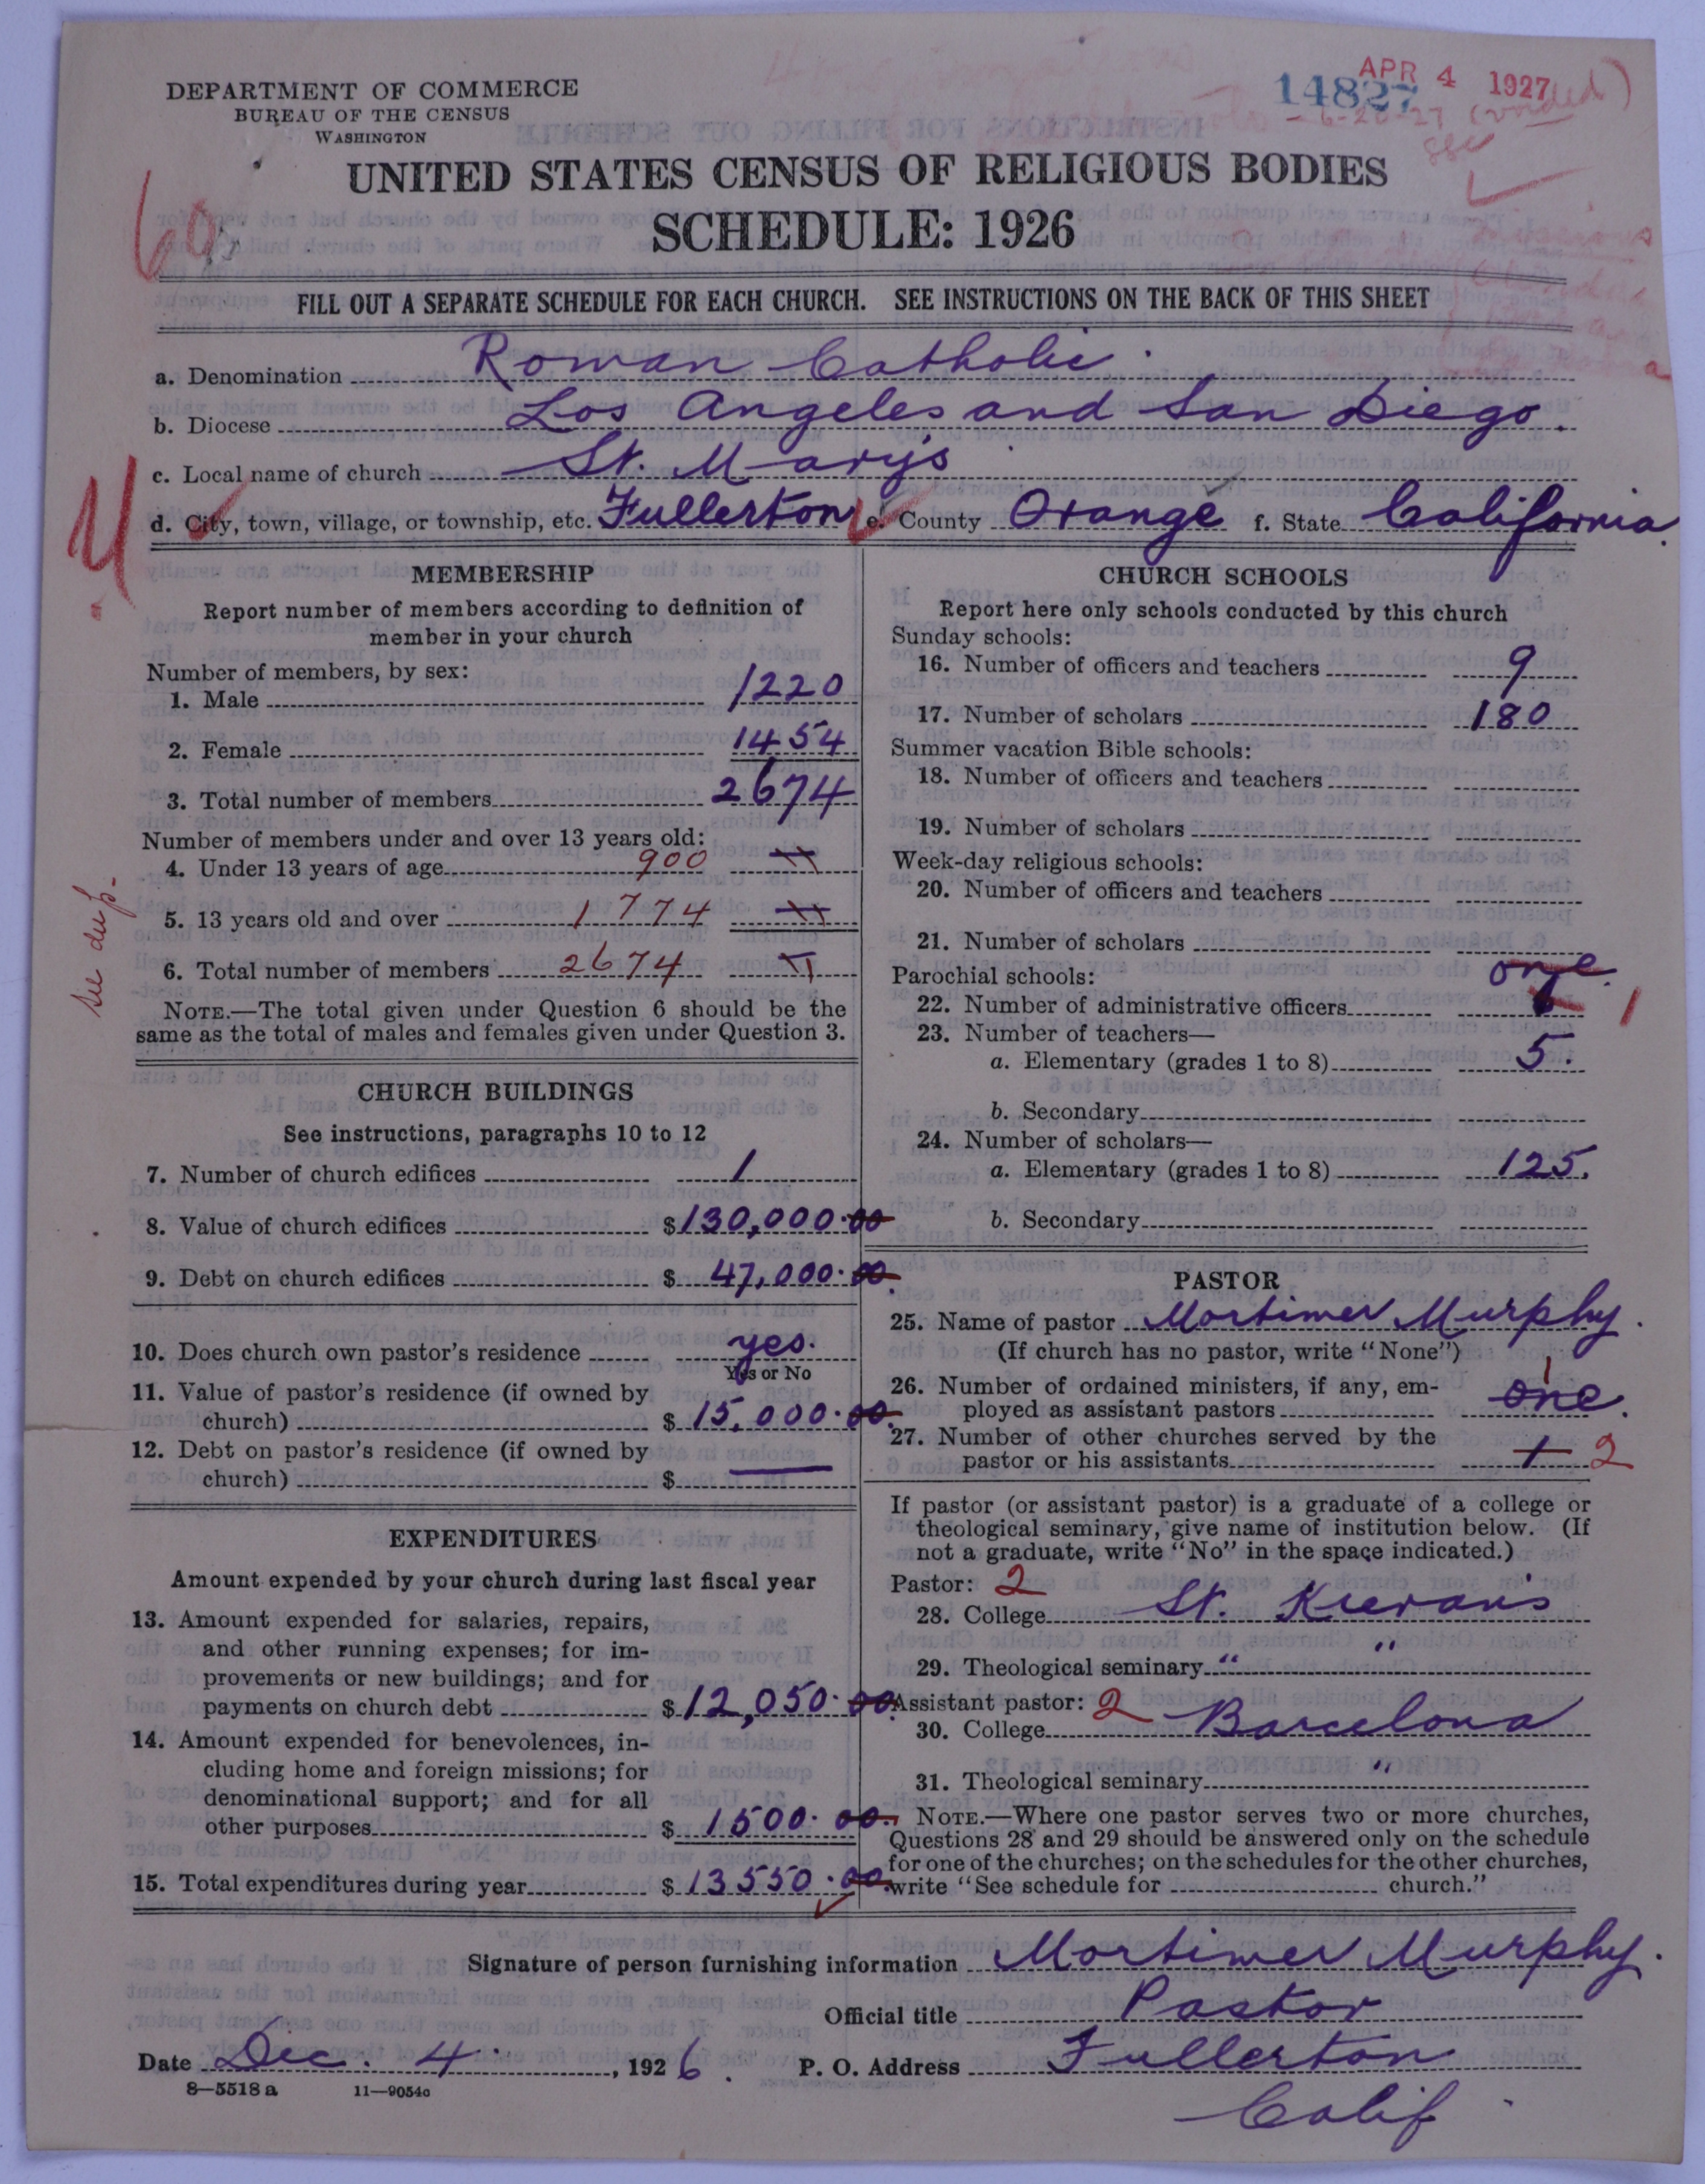 DEPARTMENT OF COMMERCE
BUREAU OF THE CENSUS
WASHINGTON
APR 4 1927
14827
6-20-27 (voided)
UNITED STATES CENSUS OF RELIGIOUS BODIES
SCHEDULE: 1926
FILL OUT A SEPARATE SCHEDULE FOR EACH CHURCH. SEE INSTRUCTIONS ON THE BACK OF THIS SHEET
a. Denomination Roman Catholic.
b. Diocese Los Angeles and San Diego.
c. Local name of church St. Mary's
d. City, town, village, or township, etc. Fullerton e. County Orange f. State California.
MEMBERSHIP
Report number of members according to definition of
member in your church
Number of members, by sex:
1. Male 1220
2. Female 1454
3. Total number of members 2674
Number of members under and over 13 years old:
4. Under 13 years of age 900
5. 13 years old and over 1774
6. Total number of members 2674
see dup.
NOTE.—The total given under Question 6 should be the
same as the total of males and females given under Question 3.
CHURCH BUILDINGS
See instructions, paragraphs 10 to 12
7. Number of church edifices 1
8. Value of church edifices $130,000.00
9. Debt on church edifices $ 47,000.00
10. Does church own pastor's residence yes.
Yes or No
11. Value of pastor's residence (if owned by
church) $ 15,000.00
12. Debt on pastor's residence (if owned by
church) $ —
EXPENDITURES
Amount expended by your church during last fiscal year
13. Amount expended for salaries, repairs,
and other running expenses; for im-
provements or new buildings; and for
payments on church debt $12,050.00
14. Amount expended for benevolences, in-
cluding home and foreign missions; for
denominational support; and for all
other purposes $ 1500.00
15. Total expenditures during year $ 13550.00
CHURCH SCHOOLS
Report here only schools conducted by this church
Sunday schools:
16. Number of officers and teachers 9
17. Number of scholars 180
Summer vacation Bible schools:
18. Number of officers and teachers
19. Number of scholars
Week-day religious schools:
20. Number of officers and teachers
21. Number of scholars
Parochial schools: one.
22. Number of administrative officers 1
23. Number of teachers—
a. Elementary (grades 1 to 8) 5.
b. Secondary
24. Number of scholars—
a. Elementary (grades 1 to 8) 125.
b. Secondary
PASTOR
25. Name of pastor Mortimer Murphy.
(If church has no pastor, write "None")
26. Number of ordained ministers, if any, em- 1
ployed as assistant pastors one.
27. Number of other churches served by the
pastor or his assistants 1 2
If pastor (or assistant pastor) is a graduate of a college or
theological seminary, give name of institution below. (If
not a graduate, write "No" in the space indicated.)
Pastor: 2
28. College St. Kieran's
29. Theological seminary " "
Assistant pastor: 2
30. College Barcelona
31. Theological seminary "
NOTE.—Where one pastor serves two or more churches,
Questions 28 and 29 should be answered only on the schedule
for one of the churches; on the schedules for the other churches,
write "See schedule for church."
Signature of person furnishing information Mortimer Murphy.
Official title Pastor
Date Dec. 4, 1926. P. O. Address Fullerton
Calif.
8—5518 a 11—9054a